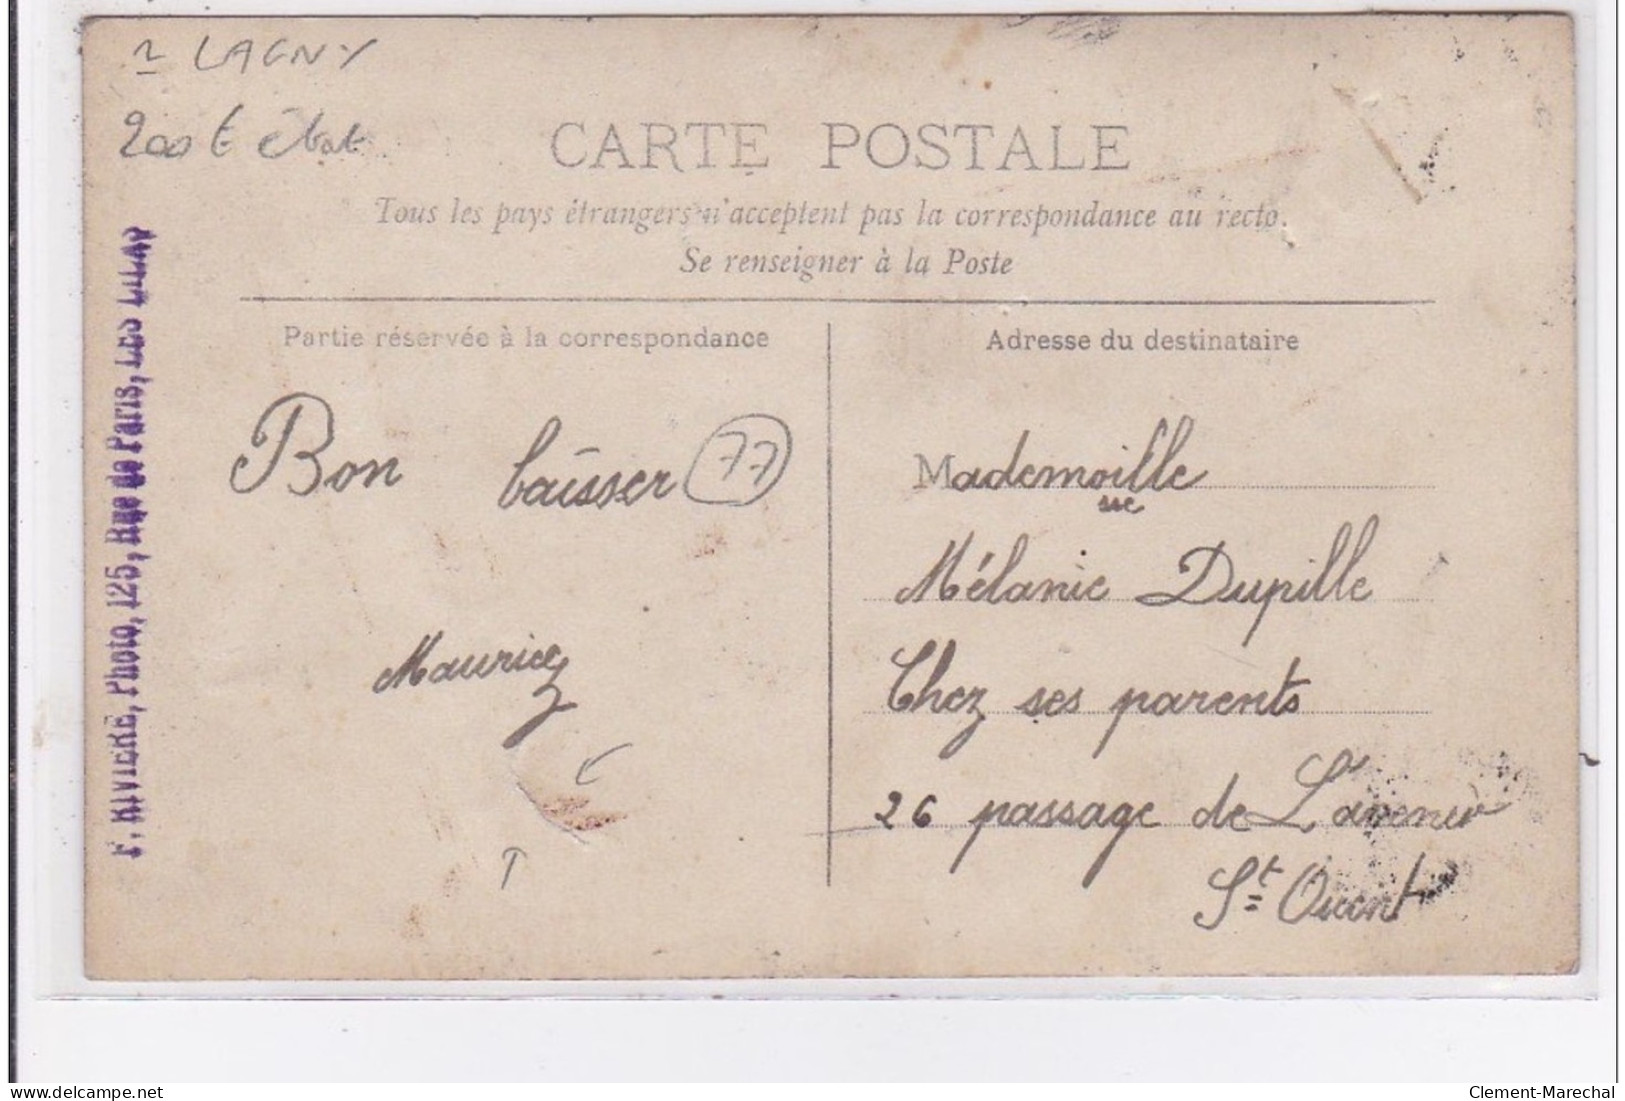 LAGNY
200 € état
CARTE POSTALE
Tous les pays étrangers n'acceptent pas la correspondance au recto.
Se renseigner à la Poste
Partie réservée à la correspondance
Adresse du destinataire
Bon baisser
77
Maurice
Mademoille
sse
Mélanie Dupille
Chez ses parents
26 passage de L'avenir
St Ouent
F. RIVIERE, Photo, 125, Rue de Paris, LES LILAS
delcampe.net
Clement-Marechal